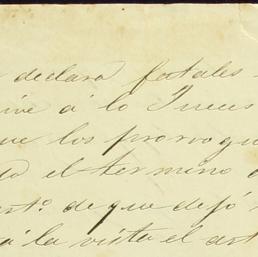 declara fatales
á lo Jueces
que los prorrogu
el termino
art.º de que dejó
á la vista el art